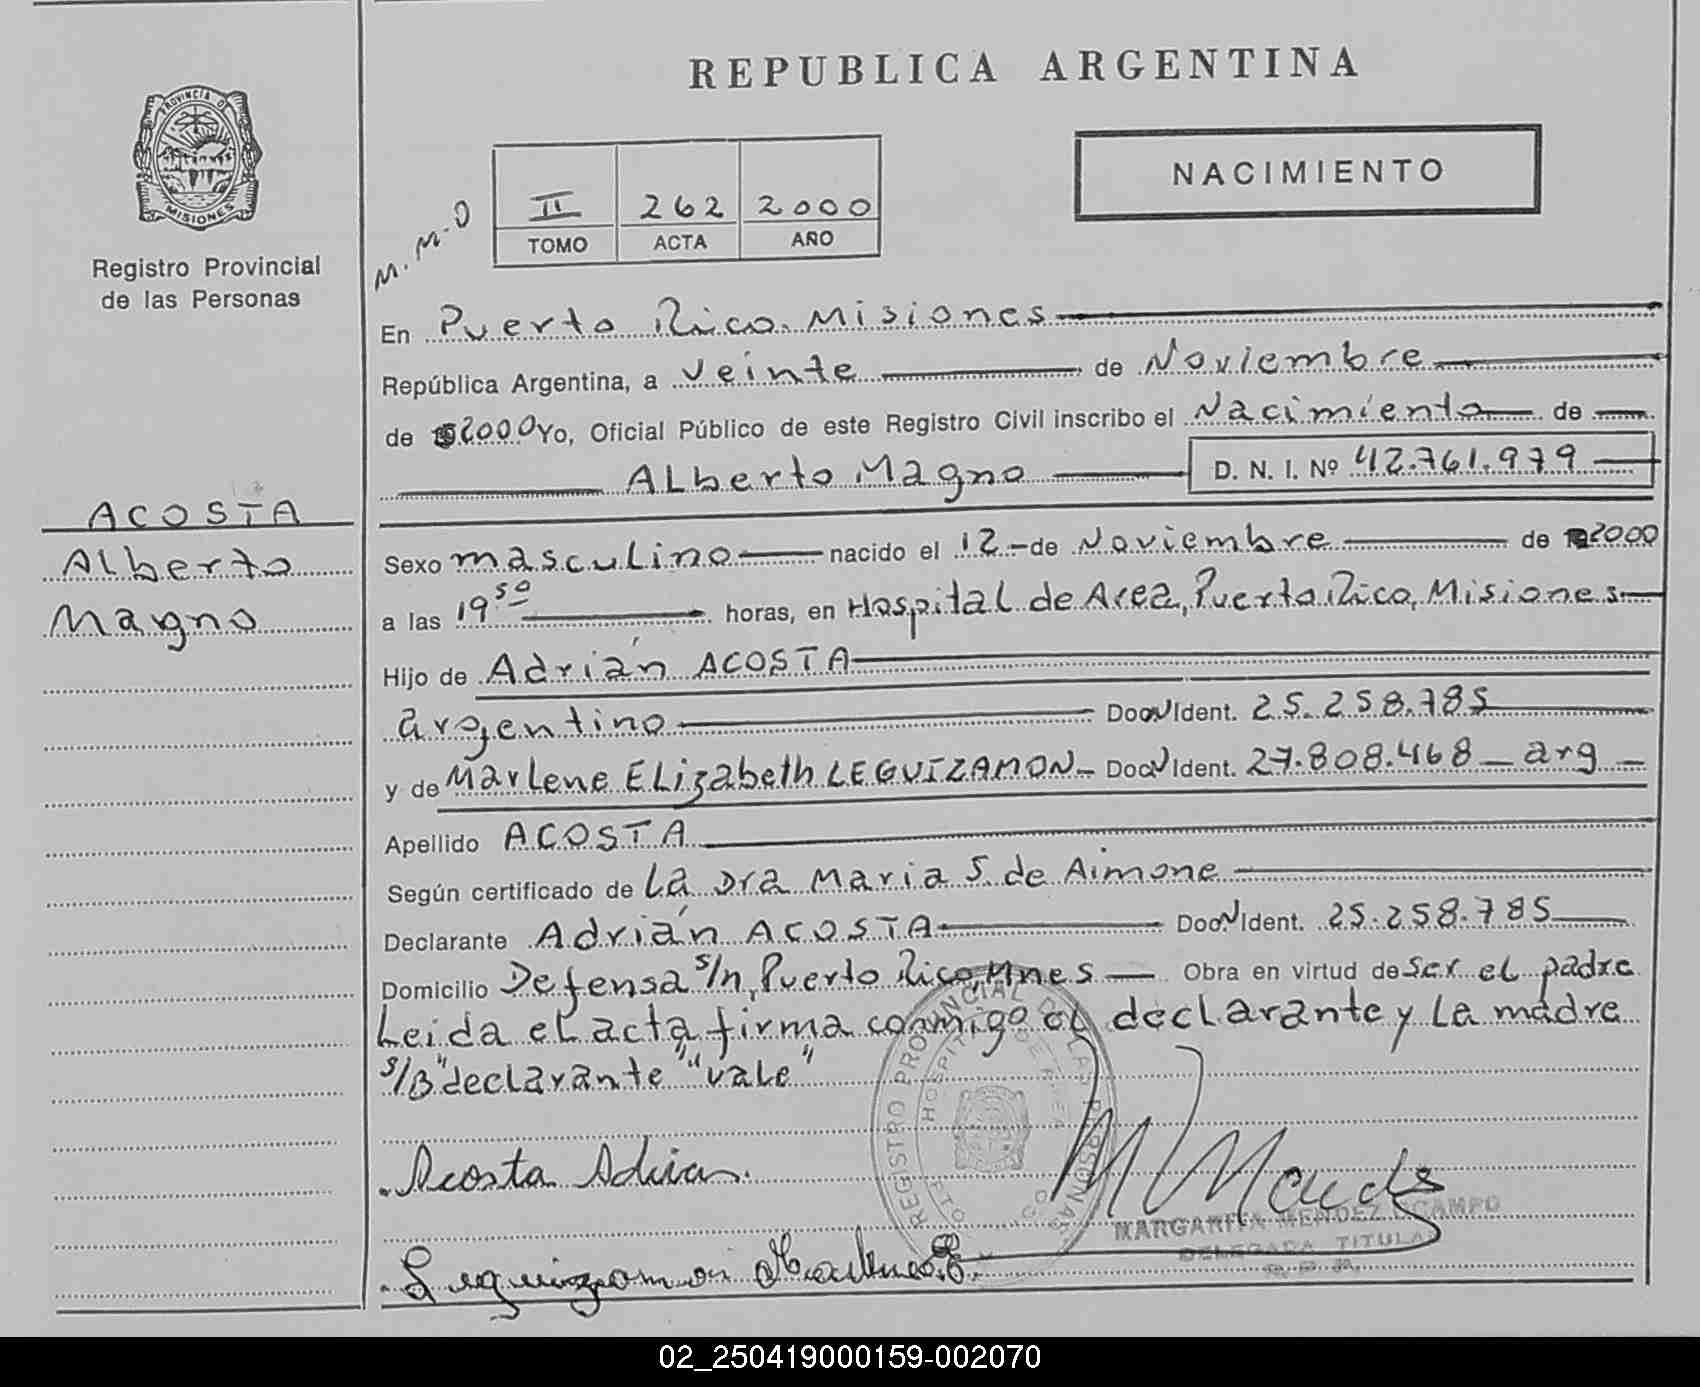 REPUBLICA ARGENTINA
PROVINCIA DE
MISIONES
Registro Provincial
de las Personas
NACIMIENTO
M.M.O
II 262 2000
TOMO ACTA AÑO
En Puerto Rico Misiones
República Argentina, a veinte de Noviembre
de 2000 Yo, Oficial Público de este Registro Civil inscribo el Nacimiento de
Alberto Magno D. N. I. Nº 42.761.979
ACOSTA
Alberto
Magno
Sexo masculino nacido el 12 de Noviembre de 2000
a las 19 50 horas, en Hospital de Area, Puerto Rico, Misiones
Hijo de Adrián ACOSTA
argentino Doc Ident. 25.258.785
y de Marlene Elizabeth LEGUIZAMON Doc Ident. 27.808.468 arg
Apellido ACOSTA
Según certificado de La Dra Maria S. de Aimone
Declarante Adrián ACOSTA Doc Ident. 25.258.785
Domicilio Defensa s/n, Puerto Rico, Mnes Obra en virtud de ser el padre
Leida el acta firma conmigo el declarante y La madre
s/B "declarante" "vale"
REGISTRO PROVINCIAL DE LAS PERSONAS
Acosta Adrian
MARGARITA MENDEZ OCAMPO
DELEGADA TITULAR
R.P.P.
Leguizamon Marlene E.
02_250419000159-002070